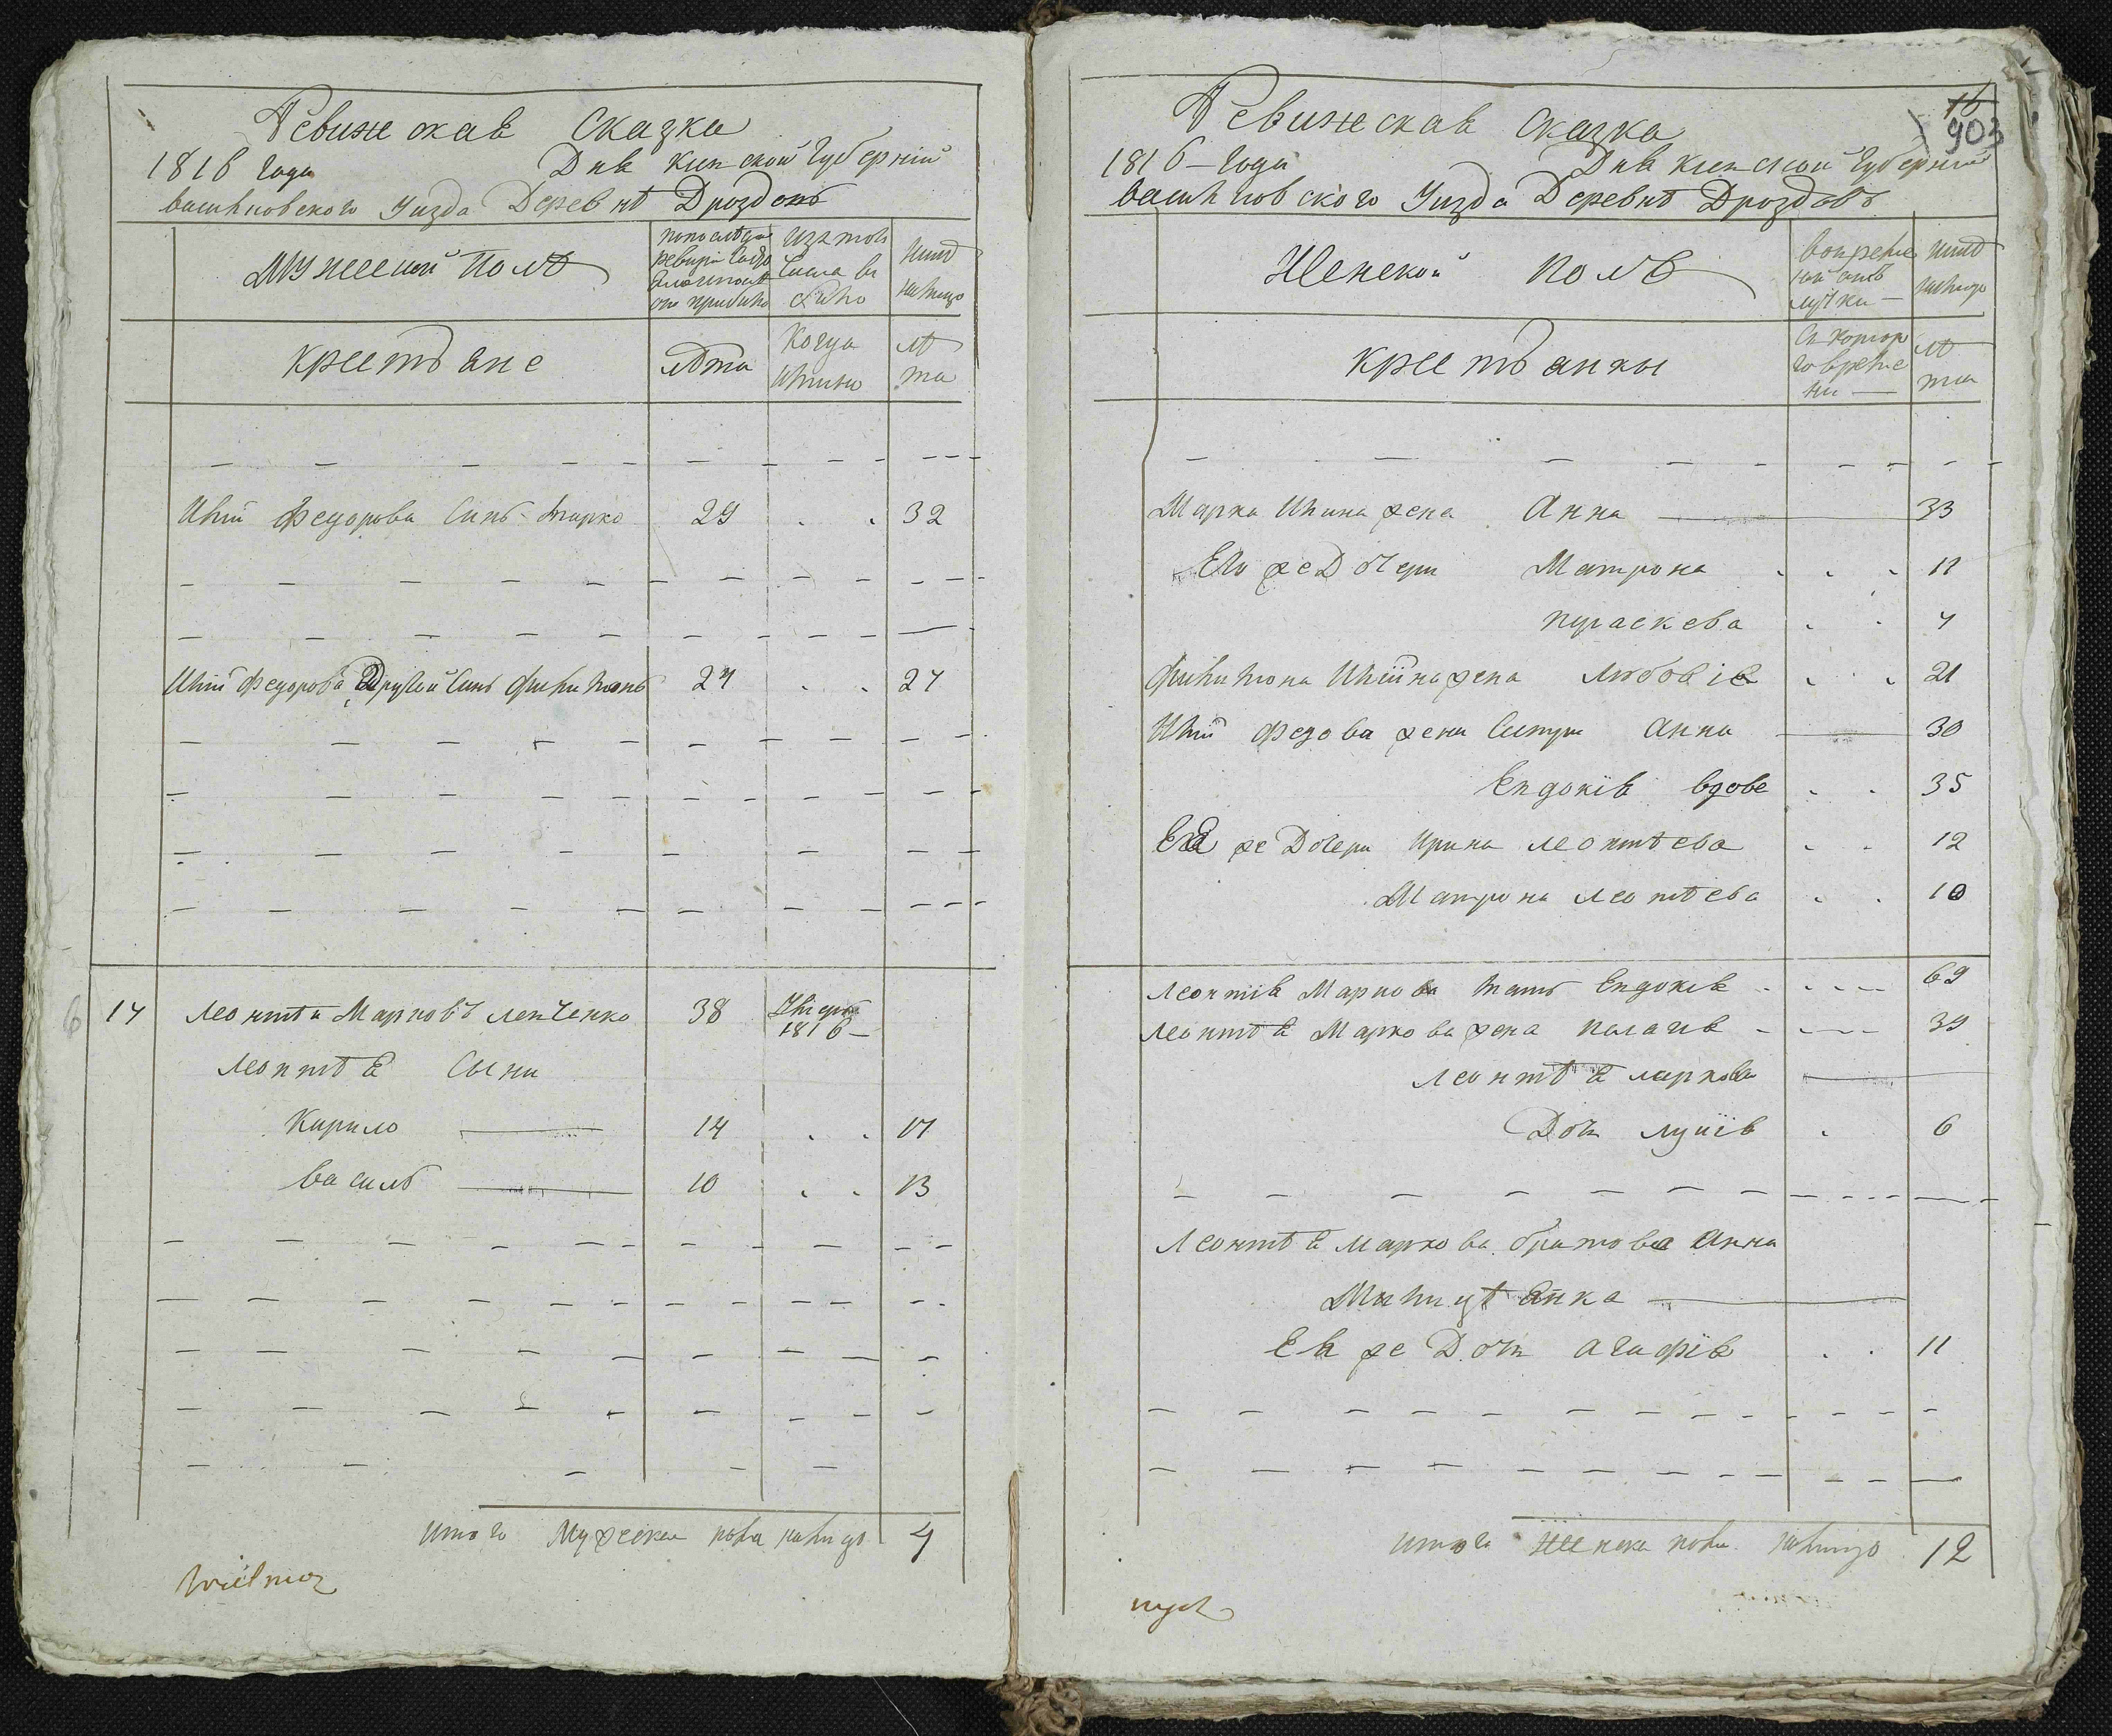 Ревижская Сказка
1816 года Для Киевской Губерніи
васильковского Уизда Деревнѣ Дроздовъ
Мужеской Полъ
Изъ того Числа выбыло
Нинѣ налицо
крестьяне
лѣта
Когда Имянно
лѣта
Илїи Федорова Синъ Марко 29 32
Илїи Федорова Другой Синъ Филимонъ 24 27
6 14 Леонтѣи Марковъ Левченко 38 Умеръ 1816
Леонтѣя Сыни
Кирило 14 17
василь 10 13
итого Мужеска пола налицо 4
16
903
Ревижеская Сказка
1816 года Для Киевской Губерніи
васильковского Уизда Деревнѣ Дроздовъ
Женской полъ
вовременной отлучки
Нинѣ налицо
крестьянки
Съ которого времени
лѣта
Марка Илина жена Анна 33
Его же Дочери Матрона 11
Параскева 4
Филимона Илїина жена Любовія 21
Илїи Федова жени Систри Анна 30
Евдокія вдова 35
Ея же Дочери Ирина леонтѣева 12
Матрона Леонтѣева 10
Леонтія Маркова мать Евдокія 69
Леонтѣя Маркова жена Палагія 39
Леонтѣя маркова
Дочь Луція 6
Леонтѣя Маркова братова Анна
Ея же Дочь Агафія 11
итого Женска пола налицо 12